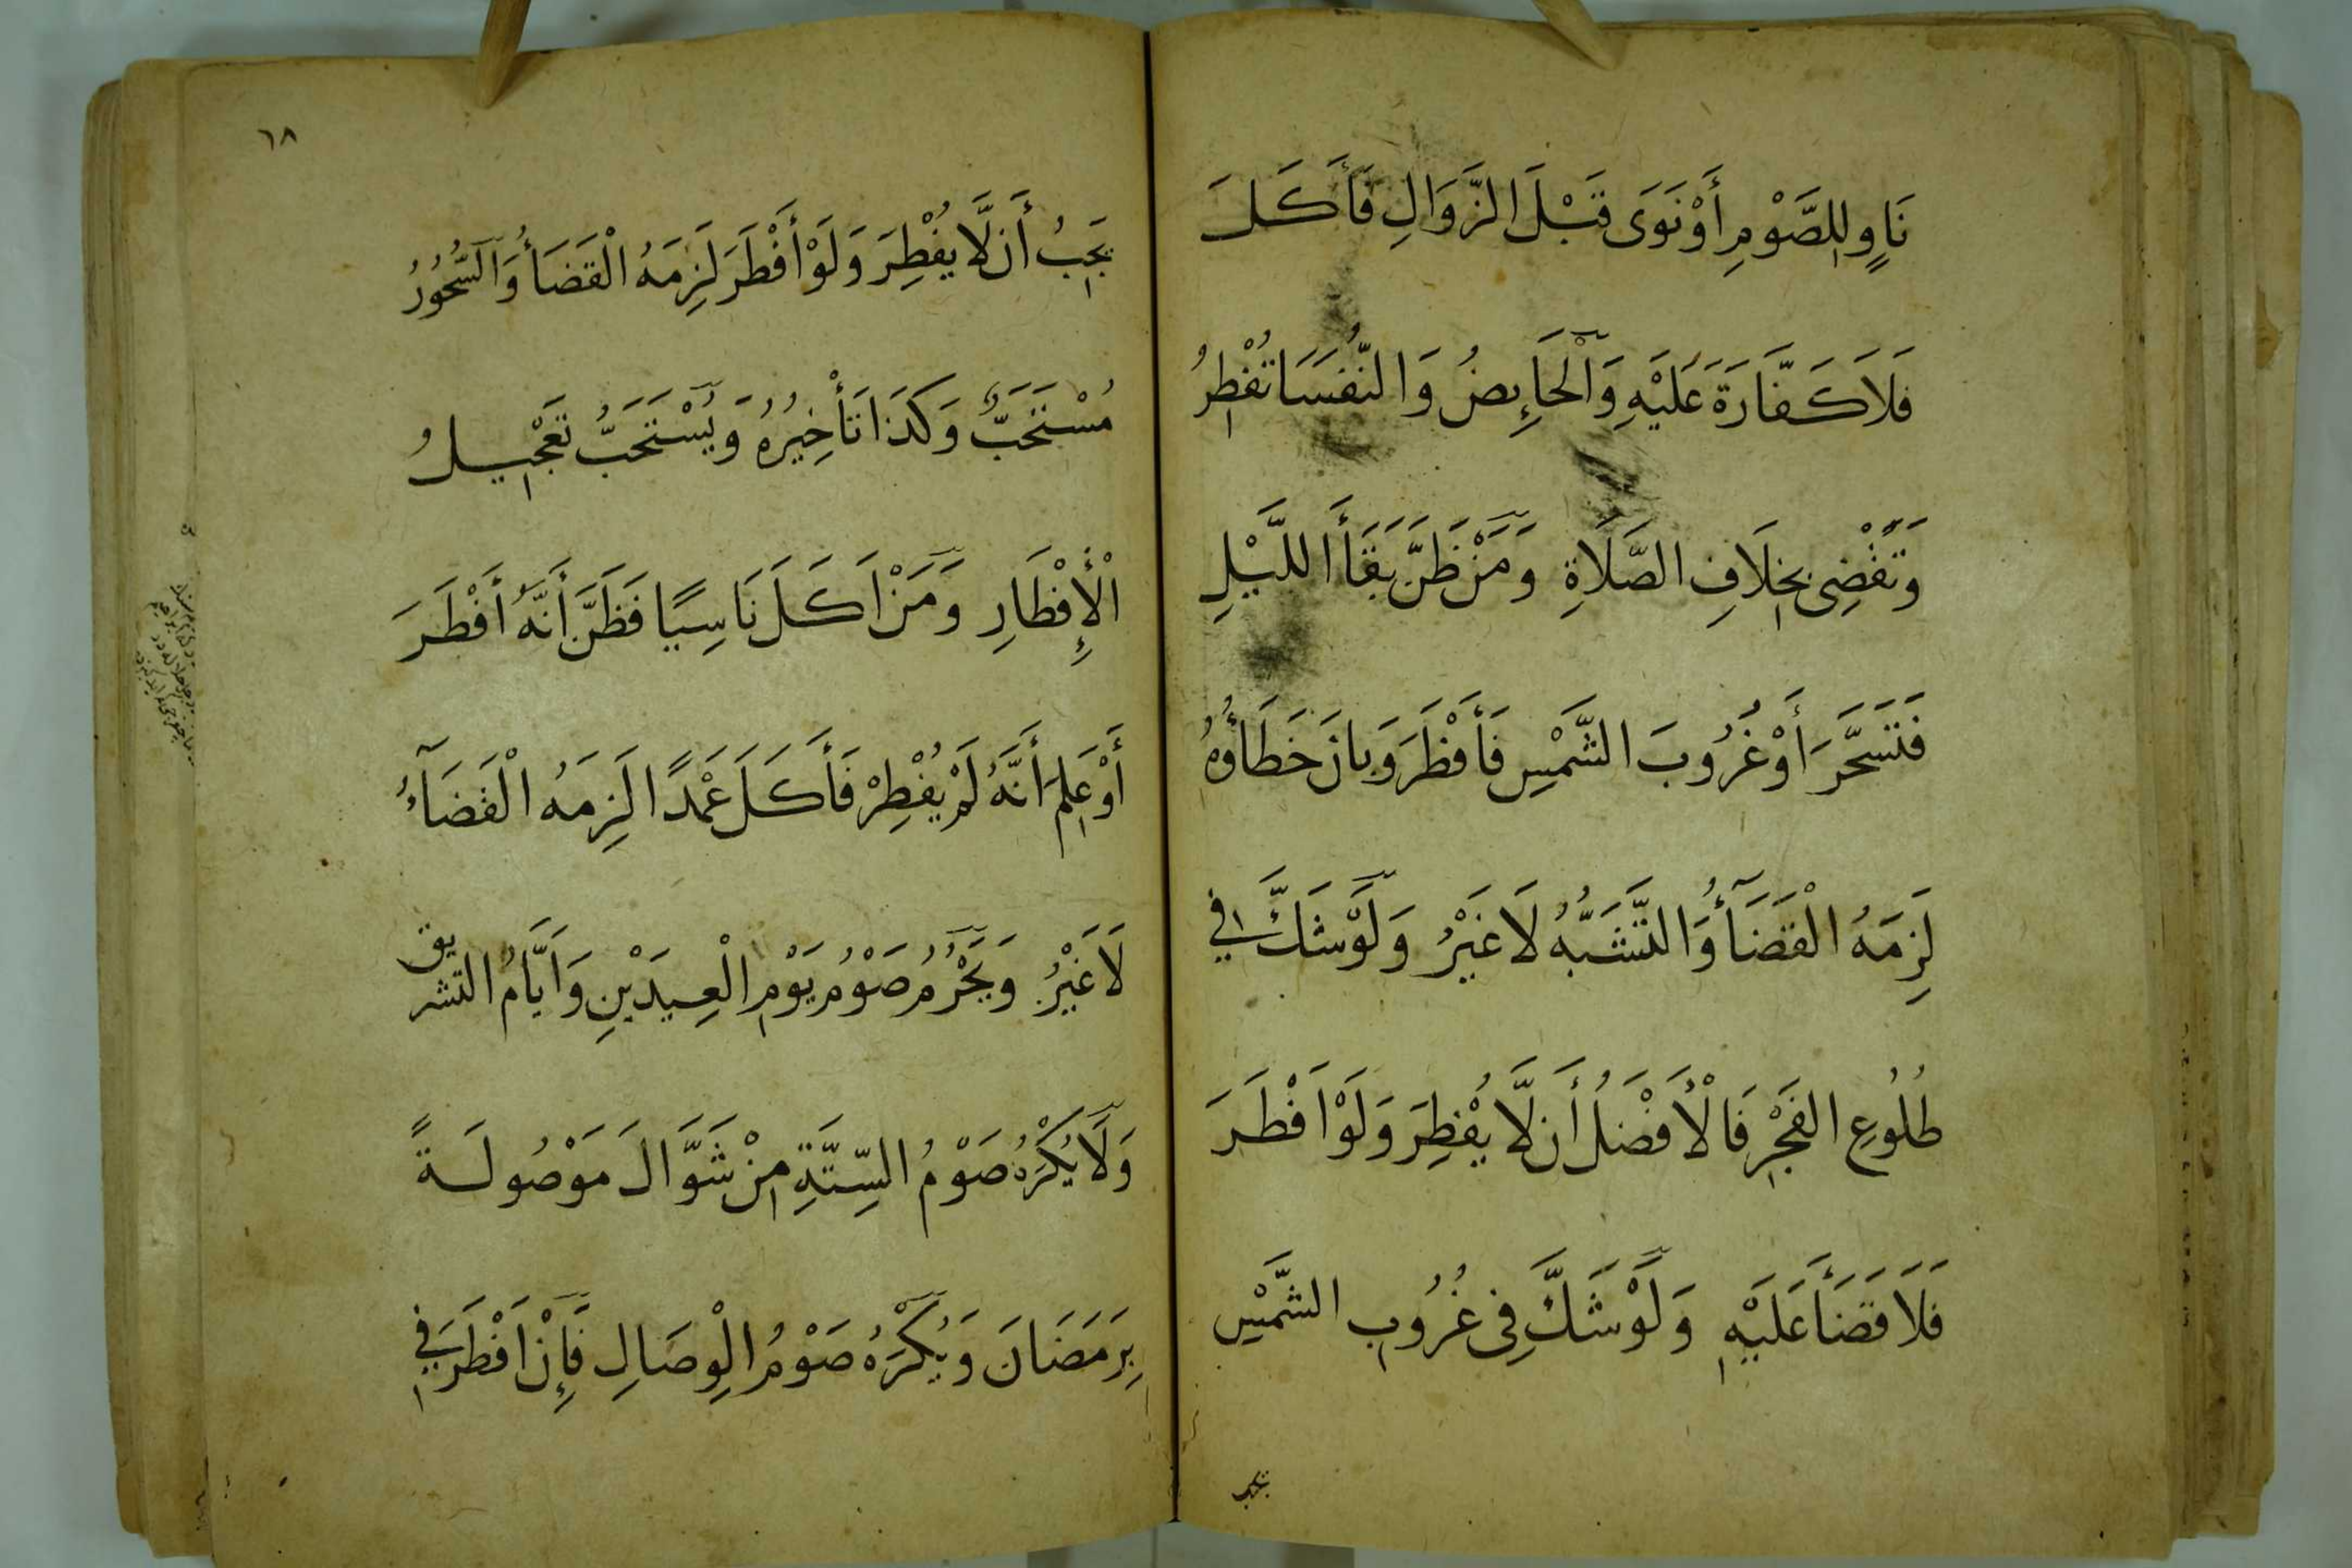 نَاوٍ لِلصَّوْمِ أَوْ نَوَى قَبْلَ الزَّوَالِ فَأَكَلَ
فَلَا كَفَّارَةَ عَلَيْهِ وَالْحَايِضُ وَالنُّفَسَا تُفْطِرُ
وَتَقْضِى بِخِلَافِ الصَّلَاةِ وَمَنْ ظَنَّ بَقَأَ اللَّيْلِ
فَتَسَحَّرَ أَوْ غُرُوبَ الشَّمْسِ فَأَفْطَرَ وَبَانَ خَطَاؤُهُ
لَزِمَهُ الْقَضَأُ وَالتَّشَبُّهُ لَا غَيْرُ وَلَوْ شَكَّ فِي
طُلُوعِ الفَجْرِ فَالْأَفْضَلُ أَن لَّا يُفْطِرَ وَلَوْ اَفْطَرَ
فَلَا قَضَأَ عَلَيْهِ وَلَوْ شَكَّ فِى غُرُوبِ الشَّمْسِ
يجب
٦٨
يَجِبُ أَن لَّا يُفْطِرَ وَلَوْ أَفْطَرَ لَزِمَهُ الْقَضَأُ وَالسُّحُورُ
مُسْتَحَبٌّ وَكَذَا تَأْخِيرُهُ وَيُسْتَحَبُّ تَعْجِيلُ
الْأِفْطَارِ وَمَنْ اَكَلَ نَاسِيًا فَظَنَّ أَنَّهُ أَفْطَرَ
أَوْ عَلِمَ أَنَّهُ لَمْ يُفْطِرْ فَأَكَلَ عَمْدًا لَزِمَهُ الْقَضَآءُ
لَا غَيْرُ وَيَحْرُمُ صَوْمُ يَوْمِ الْعِيدَيْنِ وَاَيَّامُ التشريق
وَلَا يُكْرَهُ صَوْمُ السِّتَّةِ مِنْ شَوَّالَ مَوْصُولَةً
بِرَمَضَانَ وَيُكْرَهُ صَوْمُ الْوِصَالِ فَإِنْ اَفْطَرَ فِي